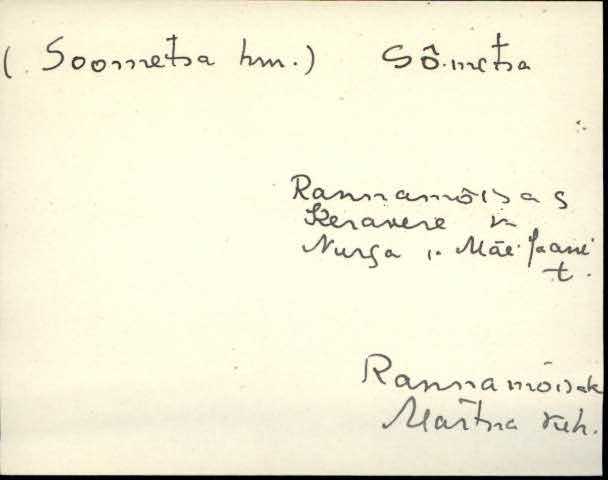 (Soometsa hm.) Sô.metsa
Rannamõisa s
Keravere k
Nurga „ Mäe Jaani
t.
Rannamõisa k
Martna kih.